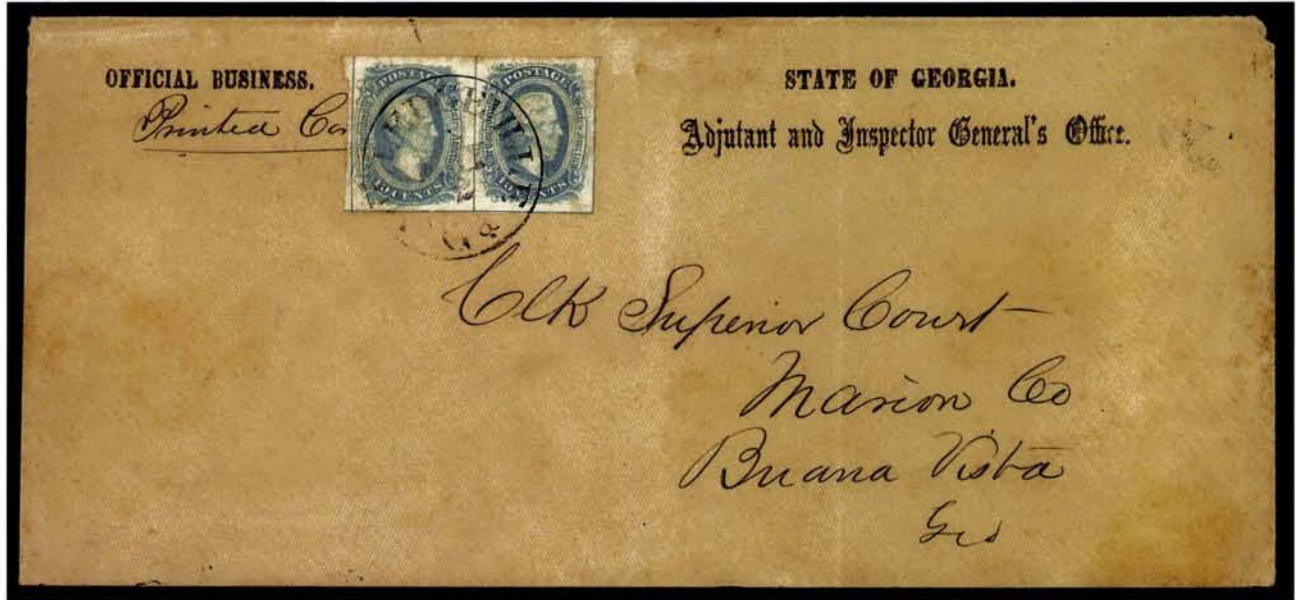 OFFICIAL BUSINESS.
Printed
POSTAGE
10 CENTS
POSTAGE
10 CENTS
STATE OF GEORGIA.
Adjutant and Inspector General's Office.
Clk Superior Court
Marion Co
Buana Vista
Geo